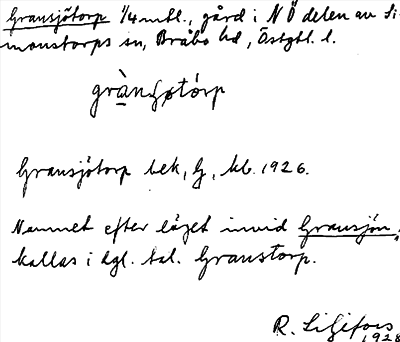 Gransjötorp 1/4 mtl., gård i NÖ delen av Si-
monstorps sn, Bråbo hd, Östgtl. l.
Gransjötorp bek, G, kb. 1926.
Namnet efter läget invid Gransjön,
kallas i dgl. tal. Granstorp.
R. Liljefors
1928